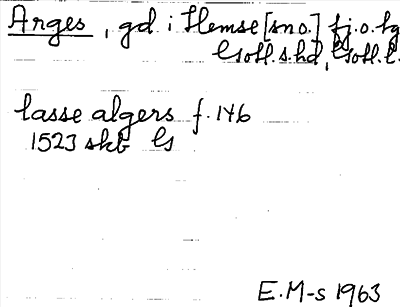 Arges, gd i Hemse [sno.] fj. o. tg
Gotl. s. hd, Gotl. l.
lasse algers f. 146
1523 skb Gs
E. M-s 1963